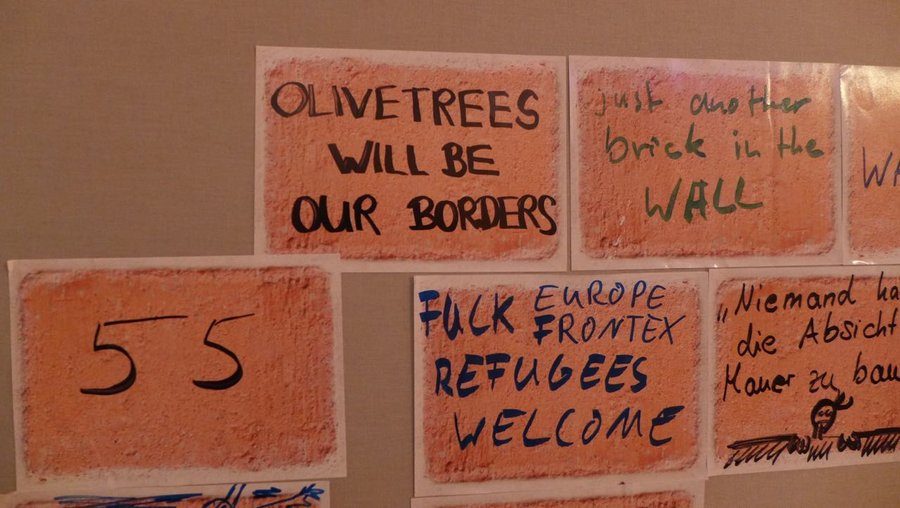 OLIVETREES
WILL BE
OUR BORDERS
just another
brick in the
WALL
55
FUCK EUROPE
FRONTEX
REFUGEES
WELCOME
„Niemand
die Absicht
Mauer zu